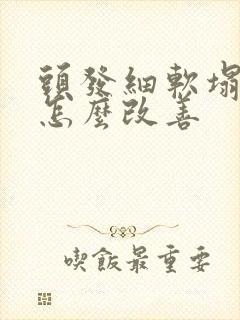 頭發細軟塌
怎麼改善
喫飯最重要